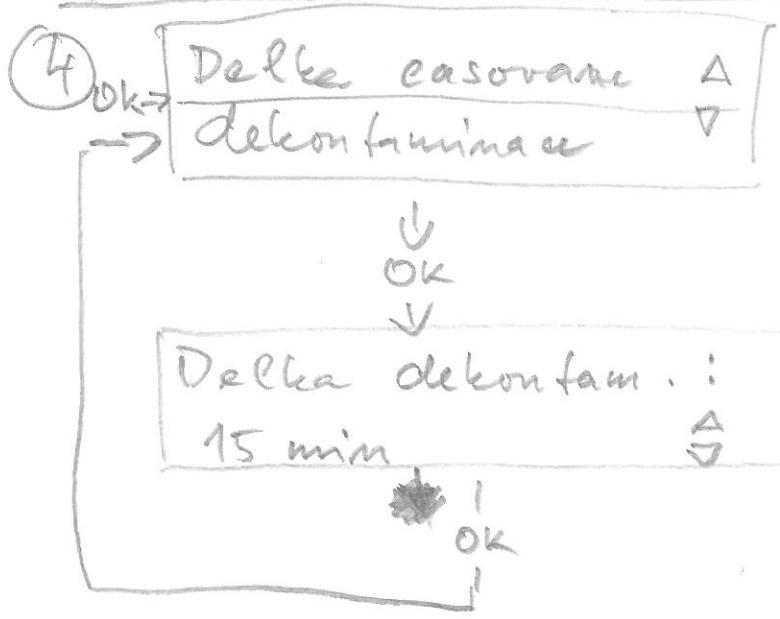 4
OK→ Delka casovane △
dekontaminace ▽
OK
Delka dekontam. :
15 min
OK